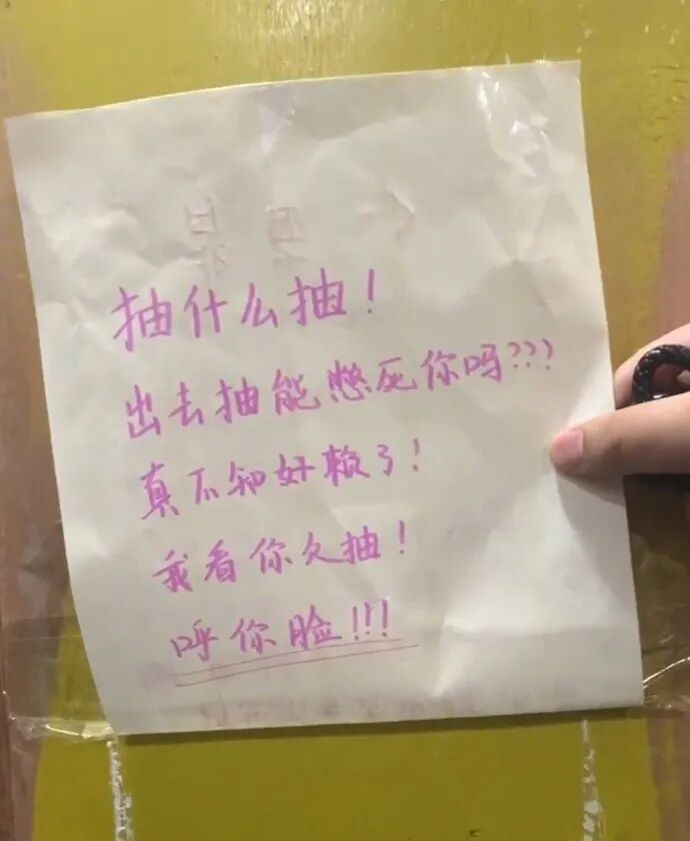 抽什么抽！
出去抽能憋死你吗???
真不知好赖了！
我看你欠抽！
呼你脸!!!